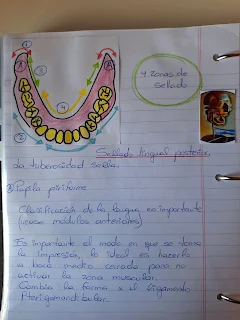 4 zonas de
sellado
1
2
3
4
Sellado lingual posterior,
da tuberosidad sella.
③ Papila piriforme
Clasificación de la lengua, es importante
(verse módulos anteriores)
Es importante el modo en que se toma
la impresión, lo ideal es hacerla
a boca medio cerrada para no
activar la zona muscular.
Cambia la forma x el ligamento
Pterigomandibular.